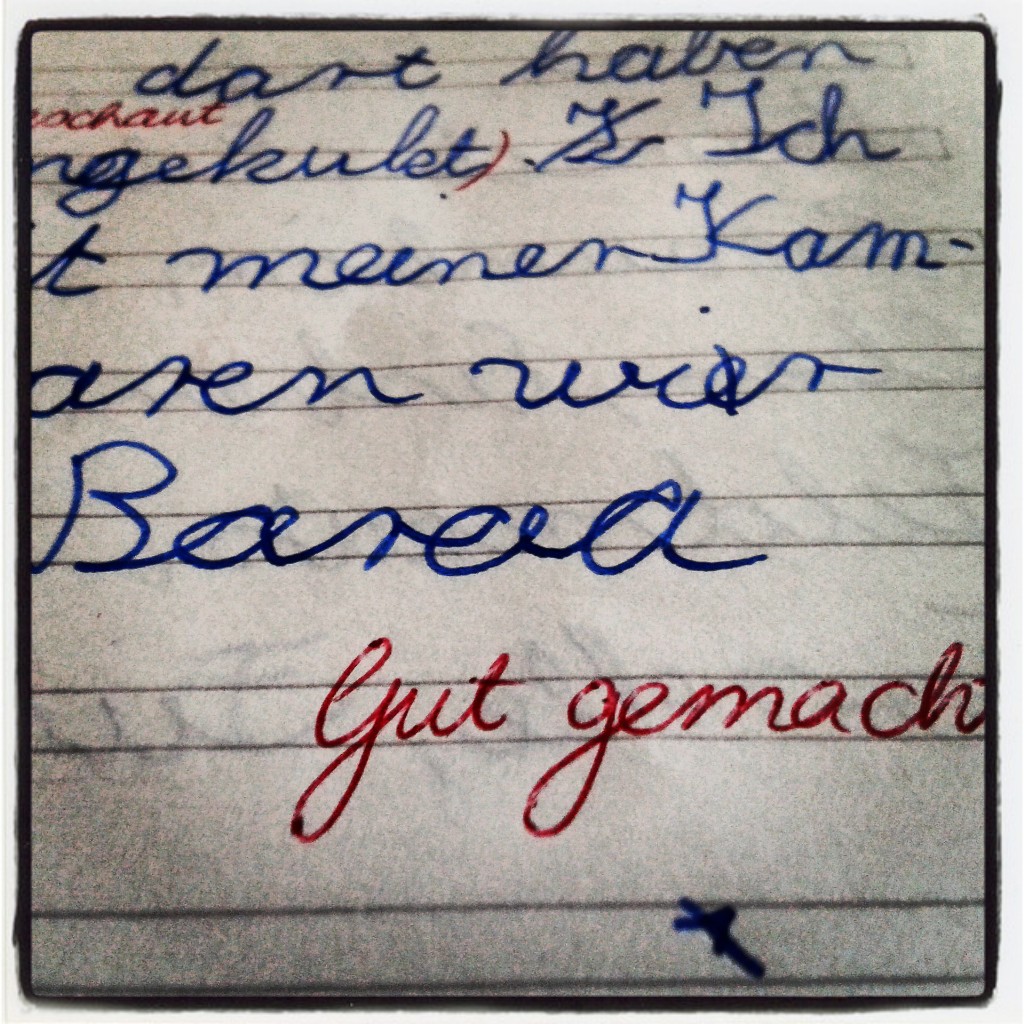 dort haben
schaut
ngekukt). Ich
t meiner Kam-
aren wir
Gut gemach